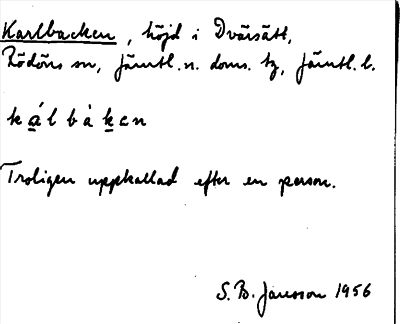 Karlbacken, höjd i Dvärsätt,
Rödöns sn, Jämtl. n. doms. tg, Jämtl. l.
kálbàken
Troligen uppkallad efter en person.
S. B. Jansson 1956